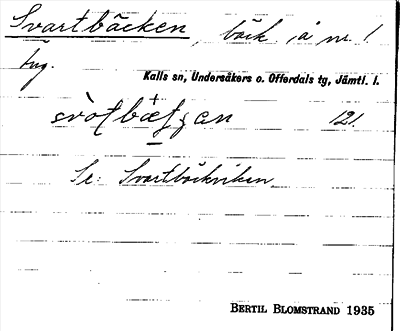 Svartbäcken, bäck, å nr 1.
Kalls sn, Undersåkers o. Offerdals tg, Jämtl. l.
121.
Se: Svartbäckviken
BERTIL BLOMSTRAND 1935